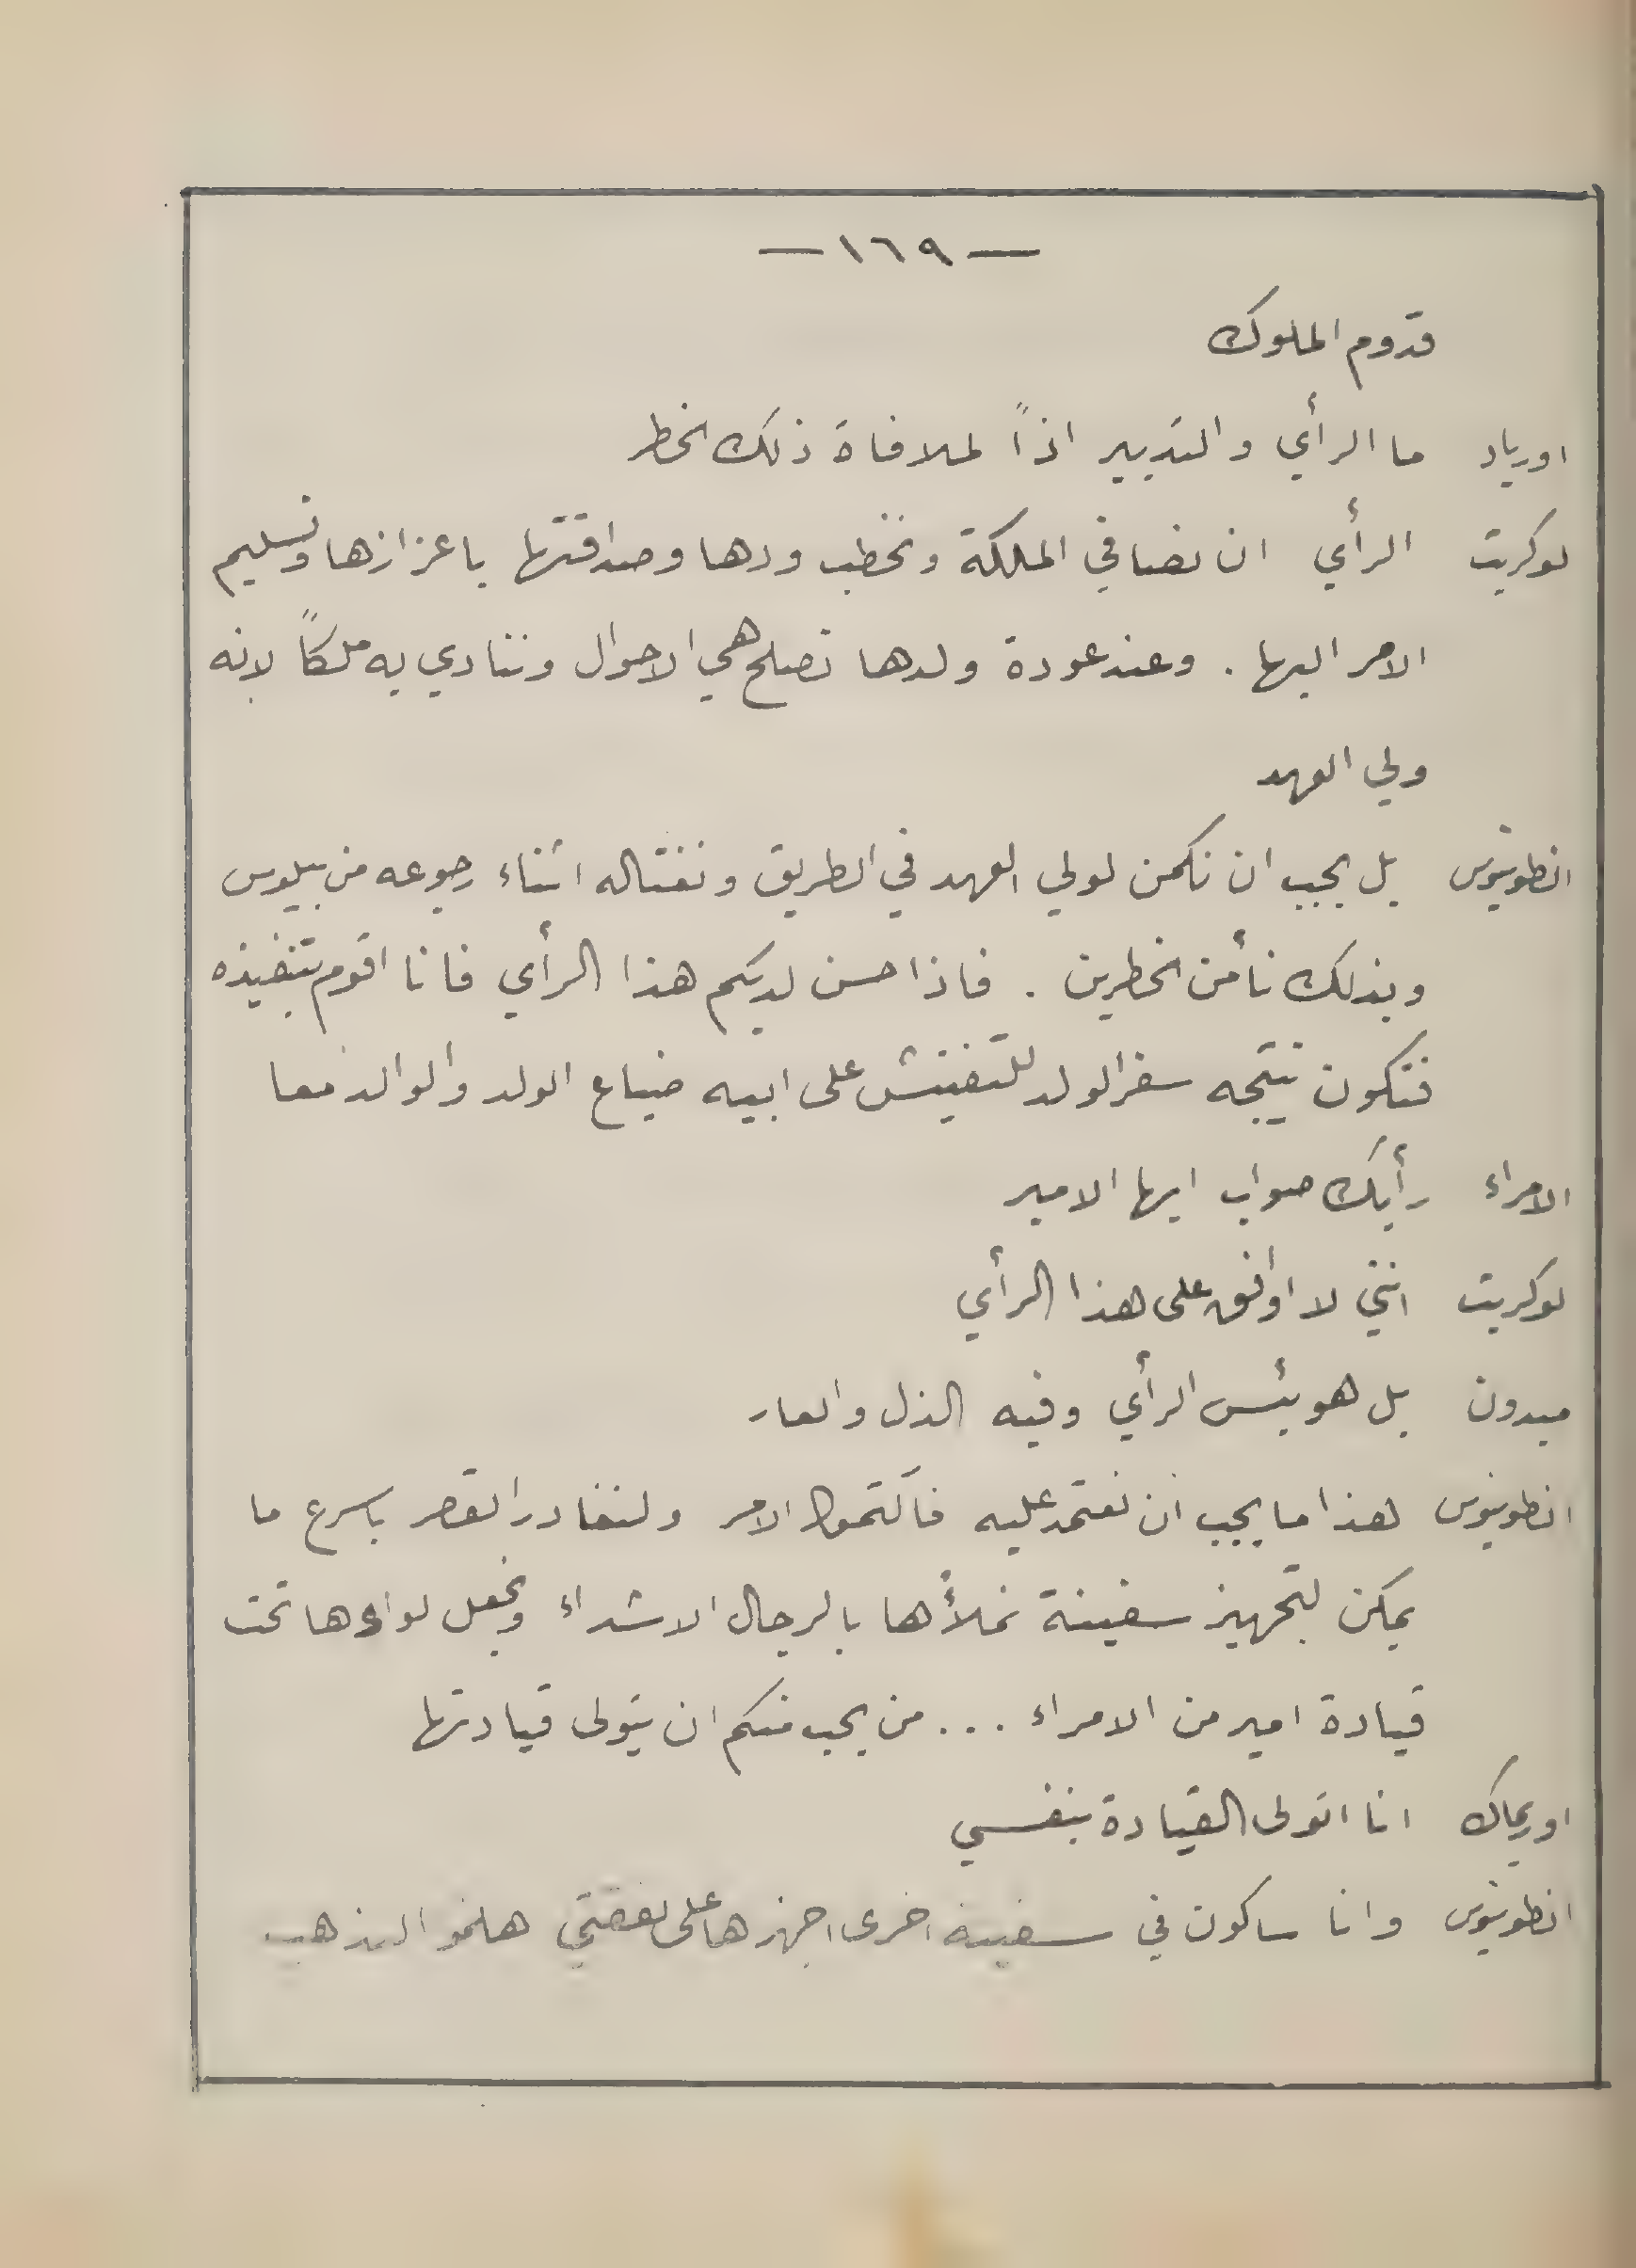 — ١٦٩ —
قدوم الملوك
اورياد ما الرأي والتدبير اذاً لملافاة ذلك الخطر
لوكريت الرأي ان نصافي الملكة ونخطب ودها وصداقتها باعزازها وتسليم
الامر اليها . وعند عودة ولدها تصلح هي الاحوال وننادي به ملكاً لانه
ولي العهد
انطونيوس بل يجب ان نكمن لولي العهد في الطريق ونغتاله اثناء رجوعه من بيلوس
وبذلك نأمن الخطرين . فاذا حسن لديكم هذا الرأي فانا اقوم بتنفيذه
فتكون نتيجه سفر الولد للتفتيش على ابيه ضياع الولد والوالد معا
الامراء رأيك صواب ايها الامير
لوكريت انني لا اوافق على هذا الرأي
ميدون بل هو بئس الرأي وفيه الذل والعار
انطونيوس هذا ما يجب ان نعتمد عليه فاكتموا الامر ولنغادر القصر باسرع ما
يمكن لتجهيز سفينة نملأها بالرجال الاشداء ونجعل لواءها تحت
قيادة امير من الامراء ... من يحب منكم ان يتولى قيادتها
اوريماك انا اتولى القيادة بنفسي
انطونيوس وانا ساكون في سفينة اخرى اجهزها على نفقتي هلموا لنذهب